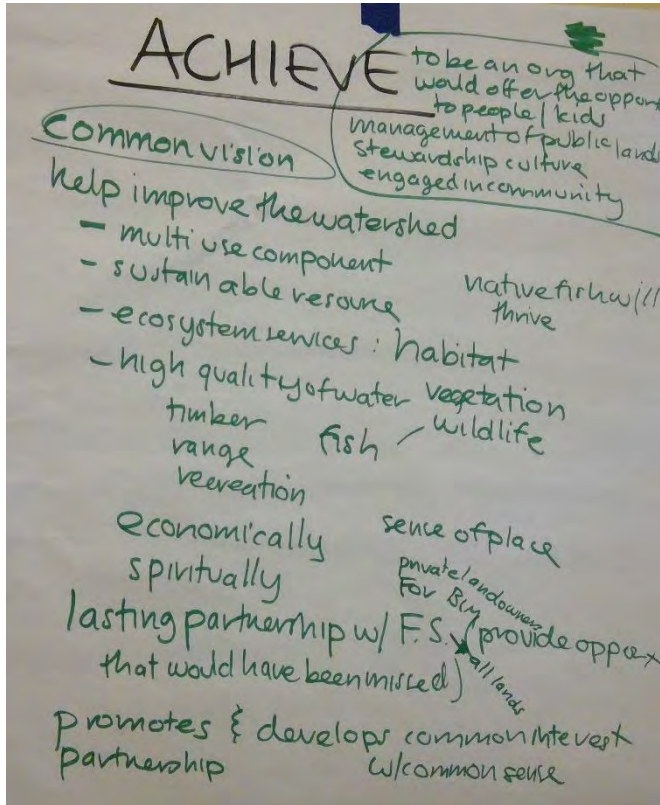 ACHIEVE
to be an org that
would offer the opport
to people / kids
management of public lands
stewardship culture
engaged in community
common vision
help improve the watershed
- multi use component
- sustainable resource
native fish will
thrive
- ecosystem services : habitat
- high quality of water vegetation
timber fish / wildlife
range
recreation
economically sence of place
spiritually
private landowners
For BLM
lasting partnership w/ F.S. (provide oppor
that would have been missed)
all lands
promotes & develops common interest
partnership w/common sense